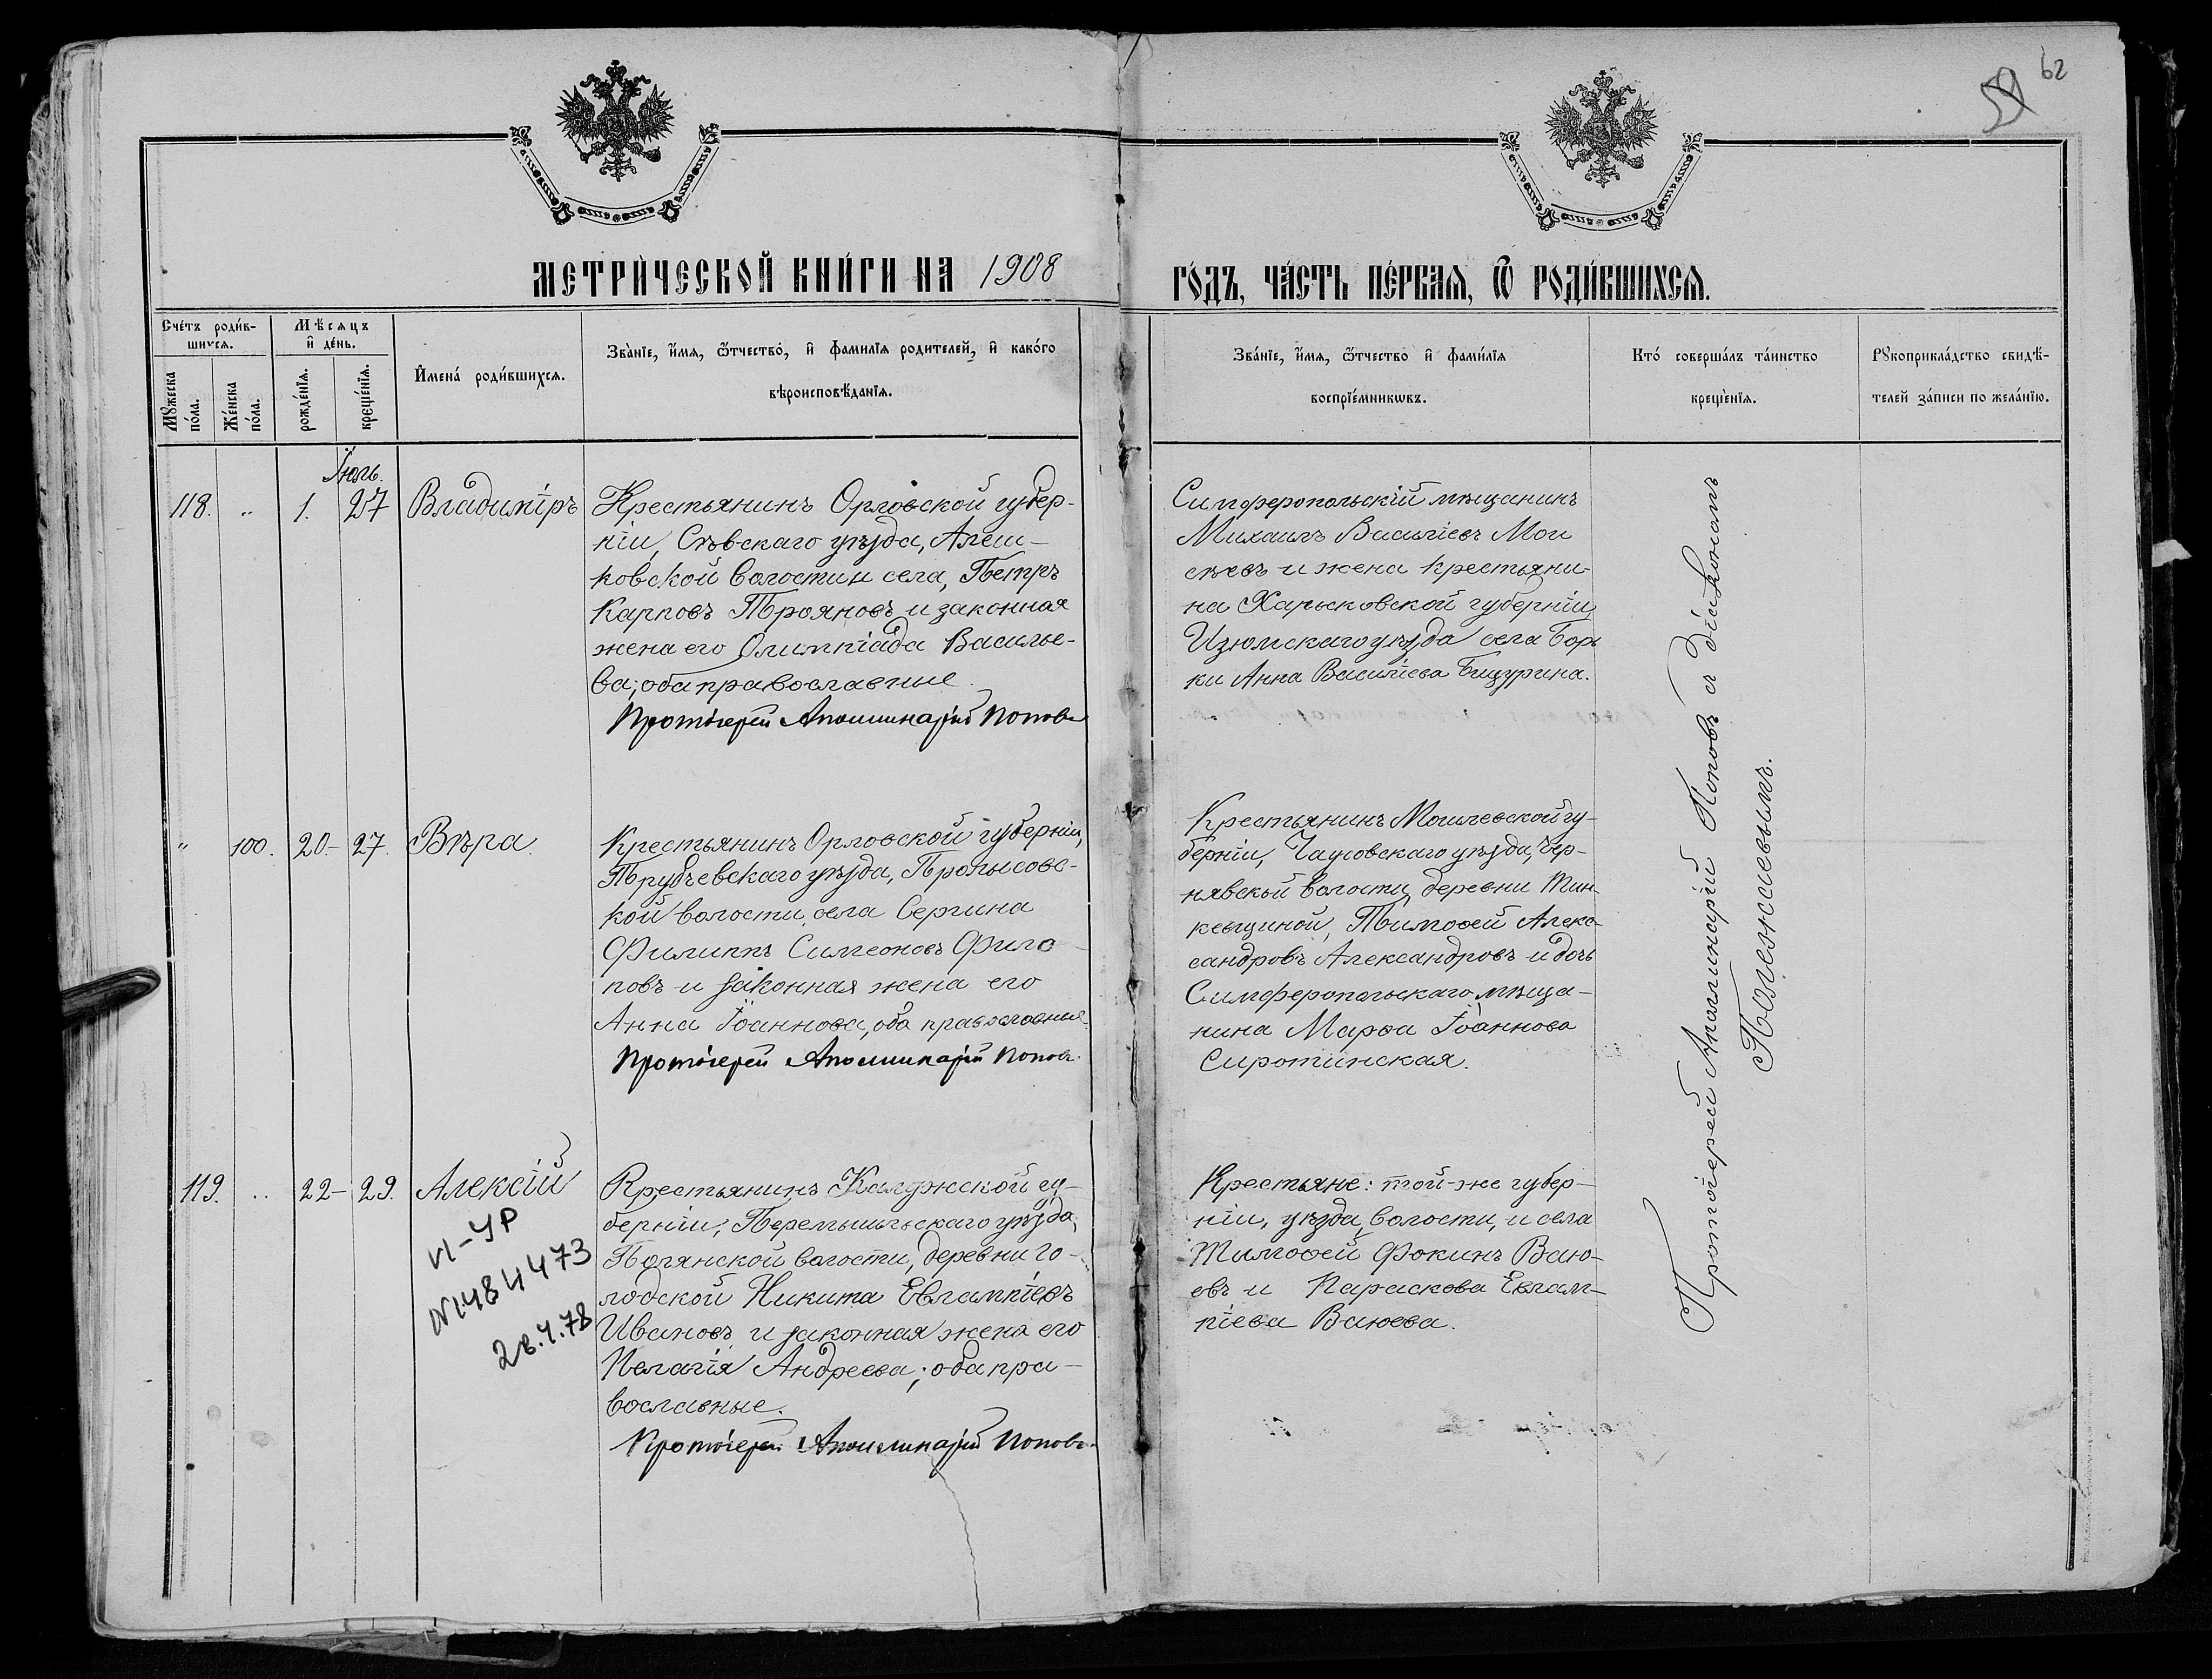 59 62
МЕТРИ́ЧЕСКОЙ КНИ́ГИ НА 1908
ГО́ДЪ, ЧА́СТЬ ПЕ́РВАЯ, Ѿ РОДИ́ВШИХСЯ.
Сче́тъ роди́в-
шихся.
Му́жеска
по́ла.
Же́нска
по́ла.
Мѣсяцъ
и де́нь.
рожде́нїя.
креще́нїя.
Имена́ роди́вшихся.
Зва́нїе, и́мя, ѻ́тчество, и фамилїя родителей, и како́го
вѣроисповѣ́данїя.
Зва́нїе, и́мя, ѻ́тчество и фами́лїя
воспрїе́мникѡвъ.
Кто́ соверша́лъ та́инство
креще́нїя.
Рукоприкла́дство свидѣ́-
телей за́писи по жела́нїю.
Іюль.
118. „ 1. 27 Владиміръ
Крестьянинъ Орловской губер-
ніи, Сѣвскаго уѣзда, Алеш-
ковской волости и села, Петръ
Карповъ Трояновъ и законная
жена его Олимпіада Василье-
ва; оба православные.
Протоіерей Аполлинарій Поповъ
Симферопольскій мѣщанинъ
Михаилъ Василіевъ Мои
сѣевъ и жена крестьяни-
на Харьковской губерніи,
Изюмскаго уѣзда села Бор
ки Анна Василіева Бицурина.
„ 100. 20- 27. Вѣра.
Крестьянинъ Орловской губерніи,
Трубчевскаго уѣзда,
кой волости, села Сергина
Филиппъ Симеоновъ Фили
повъ и законная жена его
Анна Іоаннова, оба православные.
Протоіерей Аполлинарій Поповъ.
Крестьянинъ Могилевской гу-
берніи, Чаусовскаго уѣзда, Чер-
нявской волости, деревни
Тимофей Алекс-
сандровъ Александровъ и дочь
Симферопольскаго мѣща-
нина Марѳа Іоаннова
Сиротинская.
119. „ 22- 29. Алексій
И-УР
N1484473
28.4.78
Крестьянинъ Калужской гу-
берніи, Перемышльскаго уѣзда,
волости, деревни Го-
лодской Никита Евлампіевъ
Ивановъ и законная жена его
Пелагія Андреева; оба пра-
вославные.
Протоіерей Аполлинарій Поповъ.
Крестьяне: той-же губер-
ніи, уѣзда, волости, и села
Тимоѳей Фокинъ Ваню-
евъ и Параскова Евлам-
піева
Протоіерей Аполлинарій Поповъ съ діакономъ